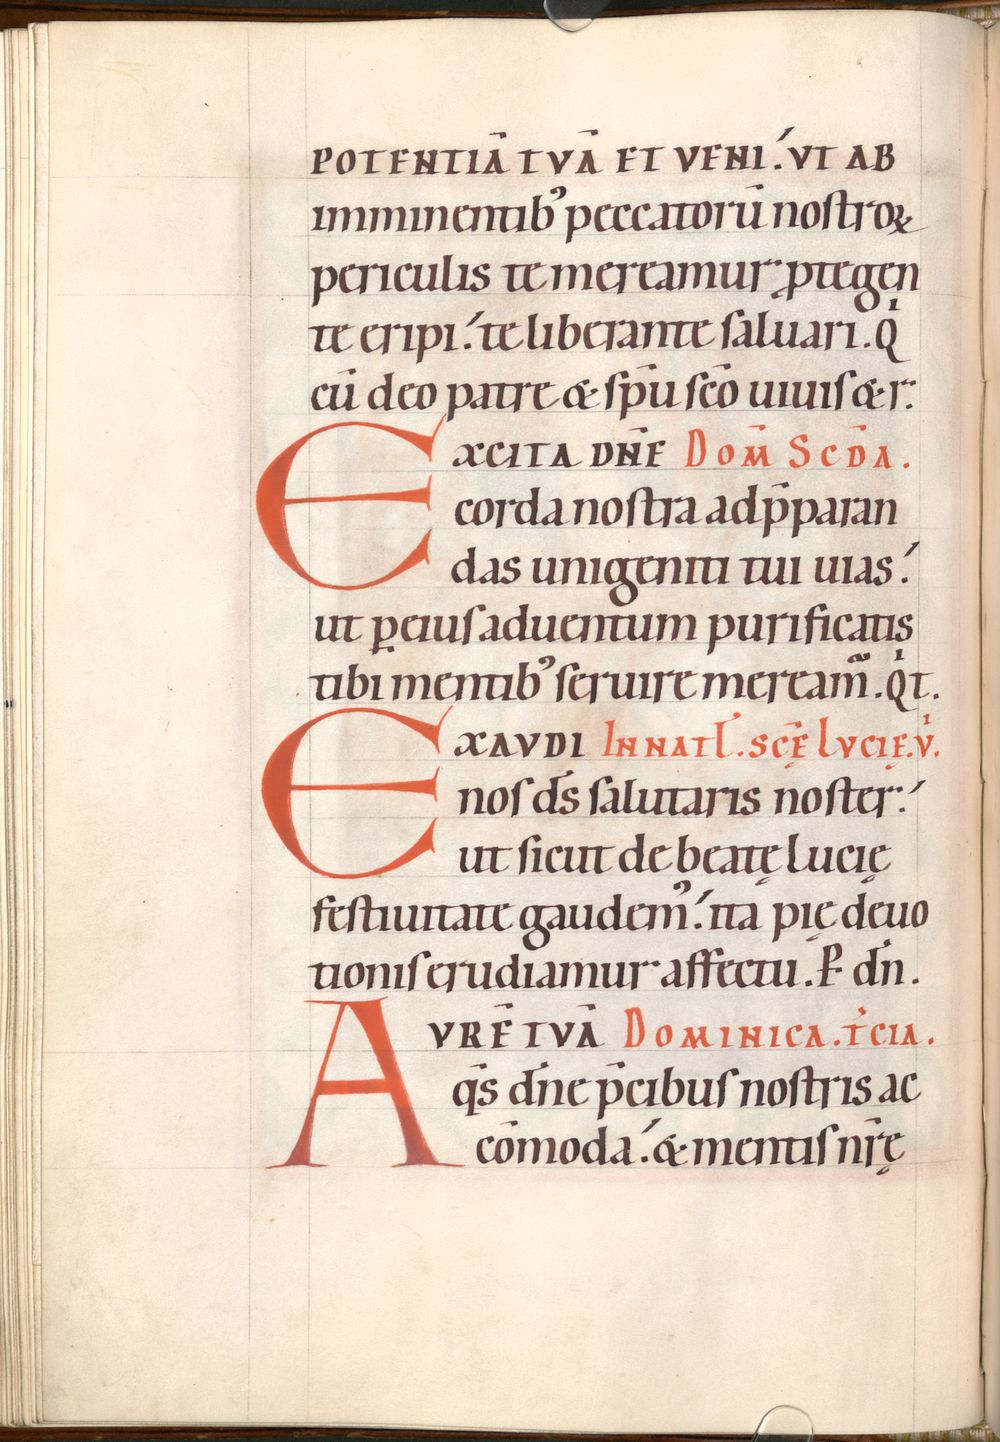 POTENTIĀ TVĀ ET VENI. VT AB
imminentibꝰ peccatorū nostroꝝ
periculis te mereamur ꝓtegen
te eripi. te liberante saluari. Qͥ
cū deo patre & sp̄u sc̄o uiuis & r.
EXCITA DN̄E DOM̄ SCD̄A.
corda nostra ad p̄paran
das unigeniti tui uias.
ut ꝑ eius aduentum purificatis
tibi mentibꝰ seruire meream̃. Qͥ t.
EXAVDI IN NATL̄. SCĘ̄ LVCIĘ. V̓.
nos d̄s salutaris noster.
ut sicut de beatę Lucię
festiuitate gaudemꝰ. ita pię deuo
tionis erudiamur affectu. P̄ dn̄.
AVRĒ TVĀ DOMINICA. T̓CIA.
q̄s dn̄e p̄cibus nostris ac
cōmoda. & mentis nr̄ę